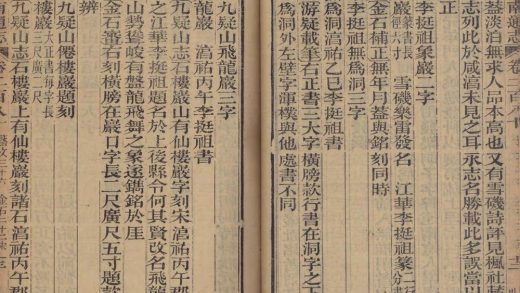 蓋淡泊無求人品本高也又有雪磯詩評見楓社
志列此於咸淳未見之耳永志名勝載此多誤當以
正
李挺祖象巖二字
巖 篆書長 雪磯樂雷發名 江華李挺祖篆二行
金石補正無年月蓋與銘刻同時
李挺祖無為洞三字
九疑山淳祐乙巳李挺祖書
游疑載筆石正書三大字橫膀款行書在洞字之下
為洞外左壁字渾樸與他處書不同
九疑山飛龍巖三字
龍巖 淳祐丙午李挺祖書
之江華李挺祖題名於上後縣令何其賢改名飛龍
山勢聳峻有盤龍飛舞之象遂鐫銘於厓
金石審右刻橫膀在巖口字長二尺廣尺五寸題款
辨
九疑山僊樓巖題刻
樓巖 大正書每字長三尺廣二尺
九疑山志石樓巖上有仙樓巖字刻宋淳祐丙午郡
九疑山志石樓巖山有仙樓巖刻諧石淳祐丙午郡